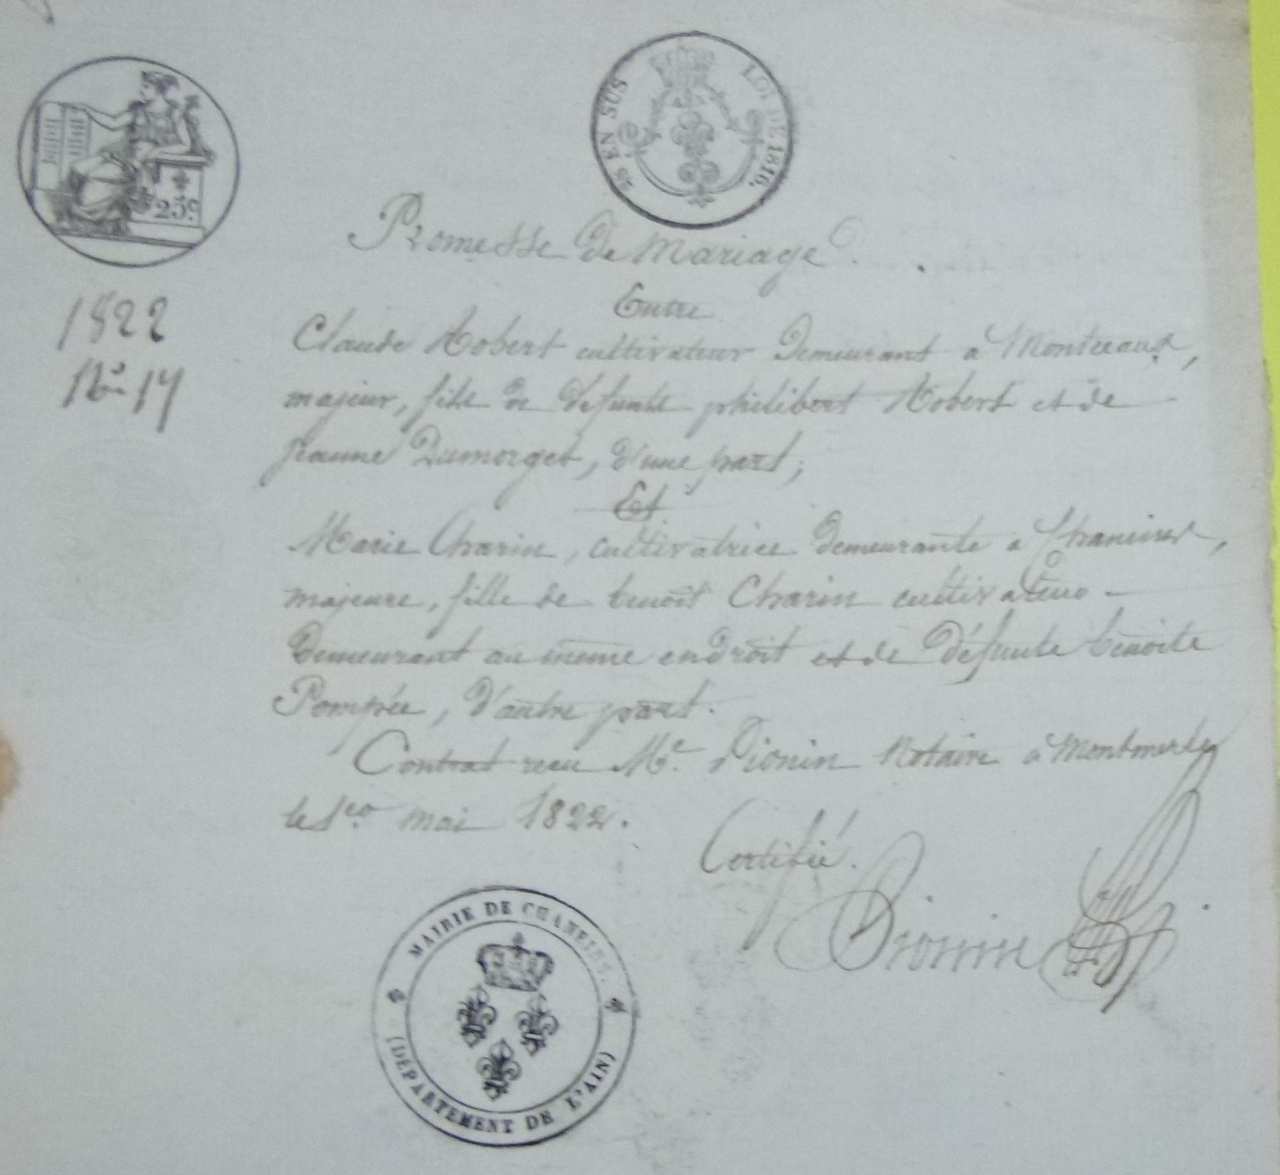 25 EN SUS LOI DE 1816.
25c.
Promesse de Mariage.
Entre
1822
No. 17
Claude Robert cultivateur demeurant à Montceaux,
majeur, fils de défunts philibert Robert et de
jeanne Dumorget, d'une part;
Et
Marie Charin, cultivatrice demeurante à Chaneins,
majeure, fille de benoit Charin cultivateur
demeurant au même endroit et de défunte benoite
Pompée, d'autre part.
Contrat recu Me. Dionin Notaire à Montmerle
le 1er mai 1822.
Certifié.
Dionin
MAIRIE DE CHANEINS.
(DÉPARTEMENT DE L'AIN)